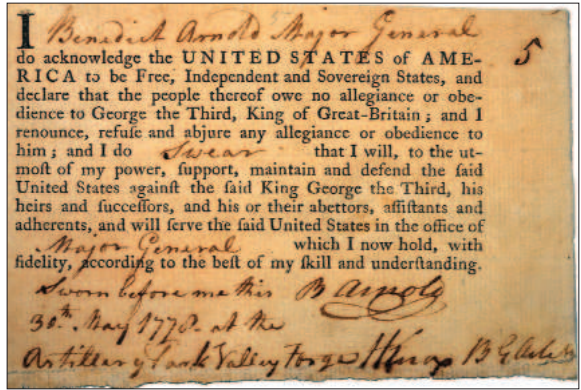 I Benedict Arnold Major General
do acknowledge the UNITED STATES of AME-
RICA to be Free, Independent and Sovereign States, and
declare that the people thereof owe no allegiance or obe-
dience to George the Third, King of Great-Britain; and I
renounce, refuſe and abjure any allegiance or obedience to
him; and I do Swear that I will, to the ut-
moſt of my power, ſupport, maintain and defend the ſaid
United States againſt the ſaid King George the Third, his
heirs and ſucceſſors, and his or their abettors, aſſiſtants and
adherents, and will ſerve the ſaid United States in the office of
Major General which I now hold, with
fidelity, according to the beſt of my ſkill and underſtanding.
Sworn before me this B Arnold
30th May 1778 at the
Artillery Park Valley Forge HKnox B G Artily
5